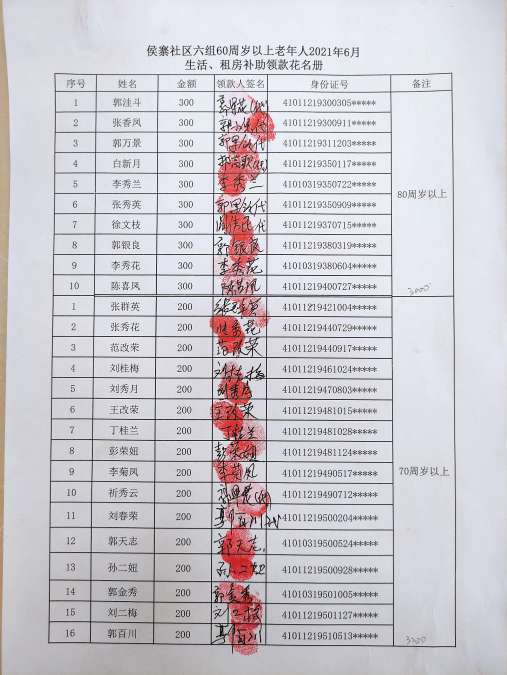 侯寨社区六组60周岁以上老年人2021年6月
生活、租房补助领款花名册
序号 姓名 金额 领款人签名 身份证号 备注
1 郭洼斗 300 41011219300305*****
2 张香凤 300 41011219300911*****
3 郭万景 300 41011219311203*****
4 白新月 300 41011219350117*****
5 李秀兰 300 李秀兰 41010319350722*****
80周岁以上
6 张秀英 300 41011219350909*****
7 徐文枝 300 41011219370715*****
8 郭银良 300 郭银良 41011219380319*****
9 李秀花 300 李秀花 41010319380604*****
10 陈喜凤 300 41011219400727***** 3000
1 张群英 200 41011219421004*****
2 张秀花 200 张秀花 41011219440729*****
3 范改荣 200 范改荣 41011219440917*****
4 刘桂梅 200 刘桂梅 41011219461024*****
5 刘秀月 200 刘秀月 41011219470803*****
6 王改荣 200 王改荣 41011219481015*****
7 丁桂兰 200 丁桂兰 41011219481028*****
8 彭荣妞 200 彭荣妞 41011219481124*****
70周岁以上
9 李菊凤 200 李菊凤 41011219490517*****
10 祈秀云 200 41011219490712*****
11 刘春荣 200 41011219500204*****
12 郭天志 200 郭天志 41010319500524*****
13 孙二妞 200 孙二妞 41011219500928*****
14 郭金秀 200 郭金秀 41010319501005*****
15 刘二梅 200 刘二梅 41011219501127*****
16 郭百川 200 郭百川 41011219510513***** 3200